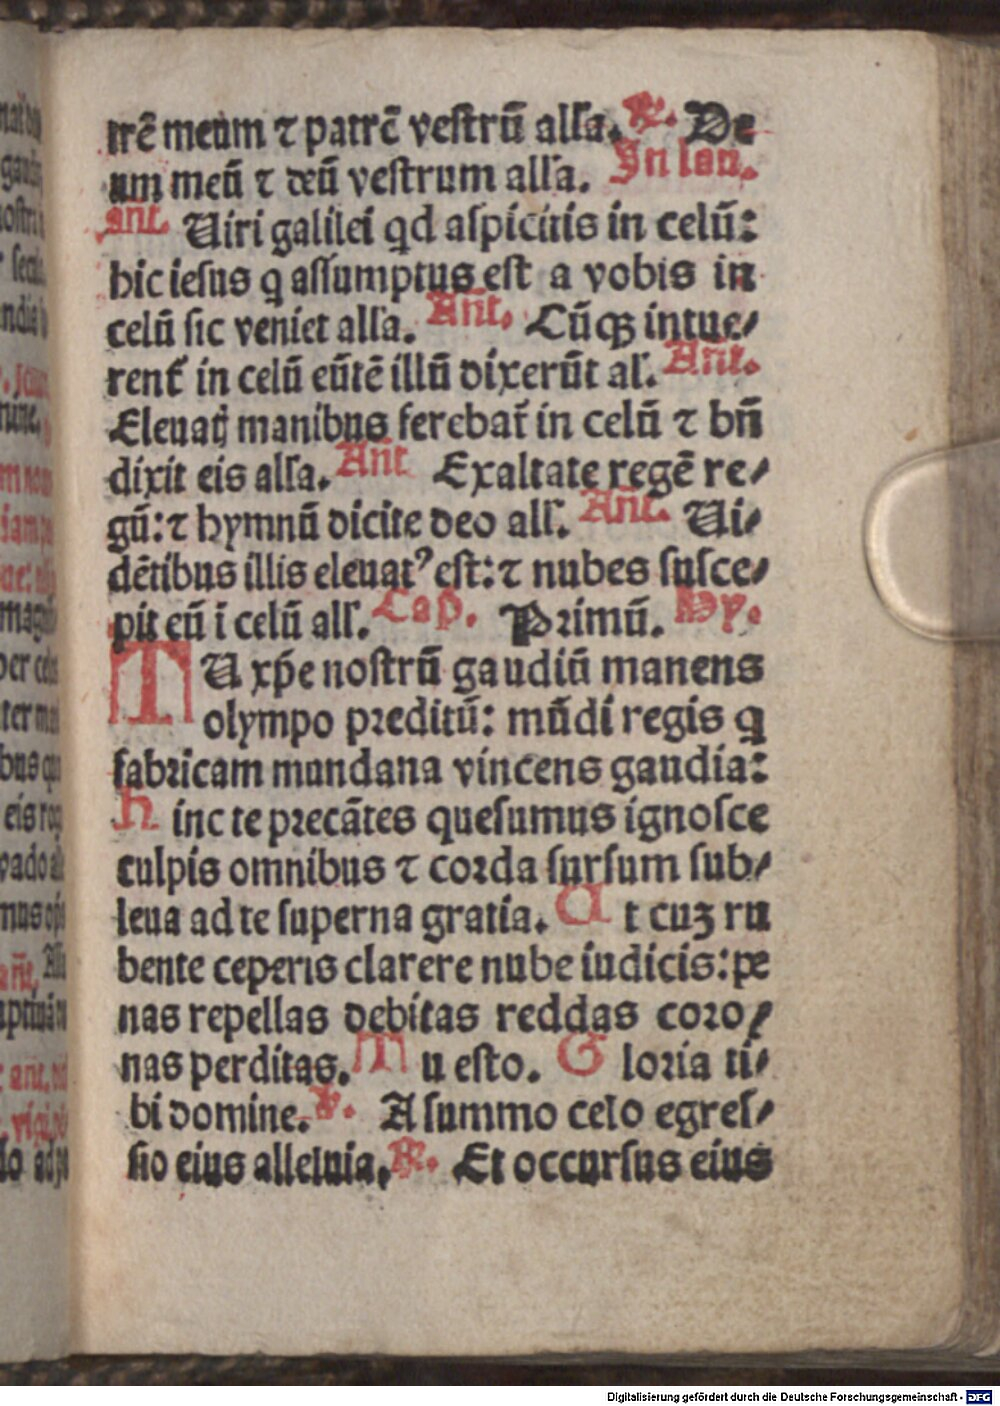 trē meum ⁊ patrē vestrū alľa. ℟. De
um meū ⁊ deū vestrum alľa. In lau.
añt. Uiri galilei qd aspicitis in celū:
hic iesus q assumptus est a vobis in
celū sic veniet alľa. Añt. Cūqꝫ intue⸗
rent᷑ in celū eūtē illū dixerūt aľ. Añt.
Eleuatꝭ manibus ferebat᷑ in celū ⁊ bñ
dixit eis alľa. Añt Exaltate regē re⸗
gū: ⁊ hymnū dicite deo alľ. Añt. Ui⸗
dētibus illis eleuatꝰ est: ⁊ nubes susce⸗
pit eū i celū alľ. Cap. Primū. Hy.
TU xp̄e nostrū gaudiū manens
olympo preditū: mūdi regis q
fabricam mundana vincens gaudia:
Hinc te precātes quesumus ignosce
culpis omnibus ⁊ corda sursum sub⸗
leua ad te superna gratia. Ut cuꝫ ru
bente ceperis clarere nube iudicis: pe
nas repellas debitas reddas coro⸗
nas perditas. Tu esto. Gloria ti⸗
bi domine. ℣. A summo celo egres⸗
sio eius alleluia. ℟. Et occursus eius
Digitalisierung gefördert durch die Deutsche Forschungsgemeinschaft - DFG